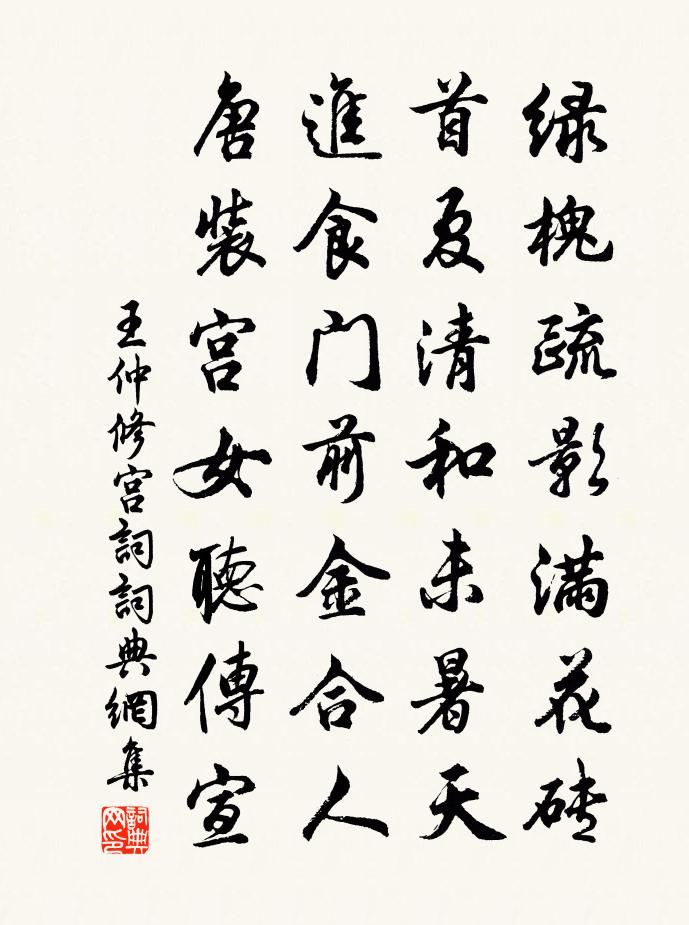 绿槐疏影满花砖
首夏清和未暑天
進食门前金合人
唐裝宫女聽傳宣
王仲修宫詞詞典網集
詞典网印